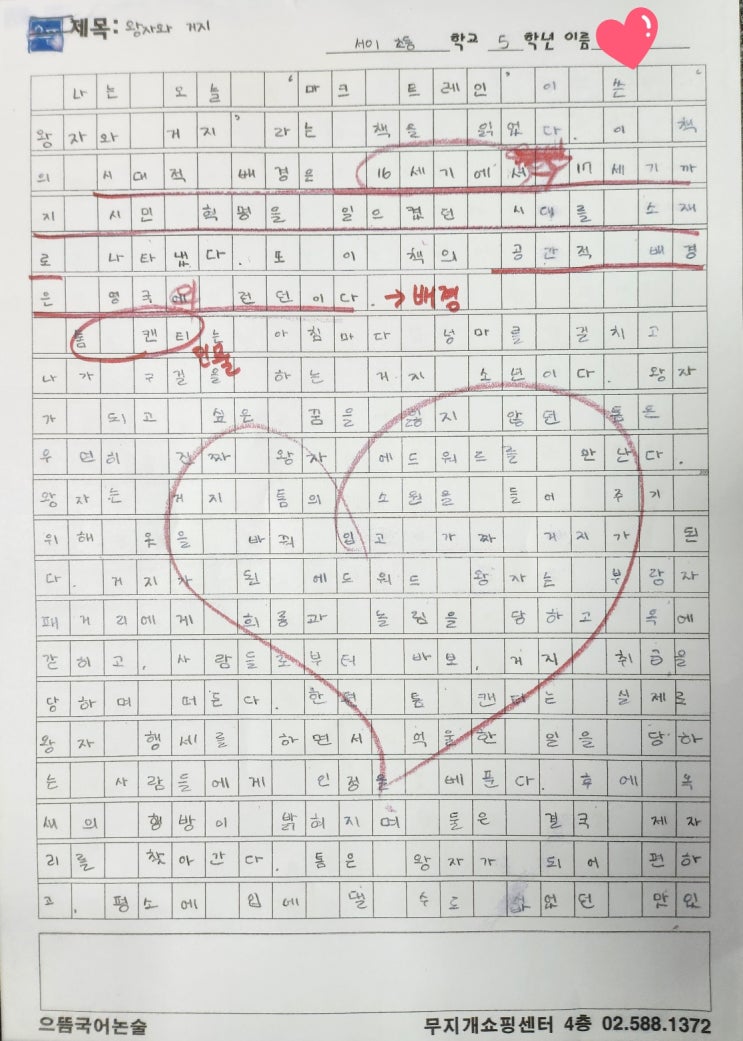 제목: 왕자와 거지
서이 초등 학교 5 학년 이름
나는 오늘 '마크 트레인'이 쓴 '
왕자와 거지'라는 책을 읽었다. 이 책
의 시대적 배경은 16세기에서 17세기까
지 시민 혁명을 일으켰던 시대를 소재
로 나타냈다. 또 이 책의 공간적 배경
은 영국의 런던이다. → 배경
톰 캔티는 아침마다 넝마를 걸치고
인물
나가 구걸을 하는 거지 소년이다. 왕자
가 되고 싶은 꿈을 잃지 않던 톰은
우연히 진짜 왕자 에드워드를 만난다.
왕자는 거지 톰의 소원을 들어 주기
위해 옷을 바꿔 입고 가짜 거지가 된
다. 거지가 된 에드워드 왕자는 부랑자
패거리에게 희롱과 놀림을 당하고 옥에
갇히고, 사람들로부터 바보, 거지 취급을
당하며 떠돈다. 한편 톰 캔티는 실제로
왕자 행세를 하면서 억울한 일을 당하
는 사람들에게 인정을 베푼다. 후에 옥
새의 행방이 밝혀지며 둘은 결국 제자
리를 찾아간다. 톰은 왕자가 되어 편하
고, 평소에 입에 댈 수도 없었던 맛있
으뜸국어논술
무지개쇼핑센터 4층 02.588.1372